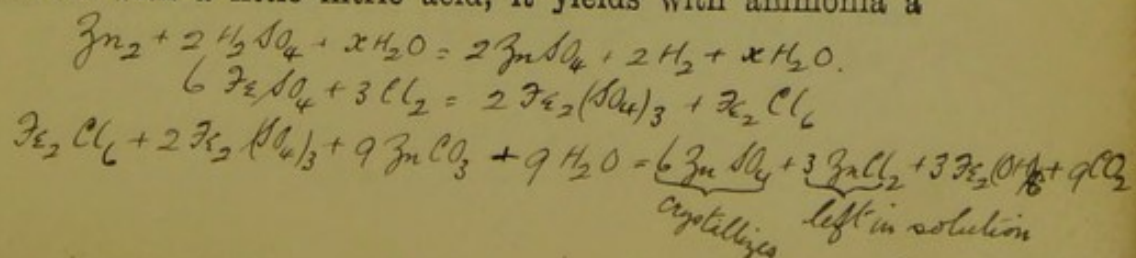 a little nitric acid, it yields with ammonia a
Zn₂ + 2 H₂SO₄ + xH₂O = 2 ZnSO₄ + 2 H₂ + xH₂O.
6 FeSO₄ + 3 Cl₂ = 2 Fe₂(SO₄)₃ + Fe₂Cl₆
Fe₂Cl₆ + 2 Fe₂(SO₄)₃ + 9 ZnCO₃ + 9 H₂O = 6 ZnSO₄ + 3 ZnCl₂ + 3 Fe₂(OH)₆ + 9CO₂
crystallizes left in solution